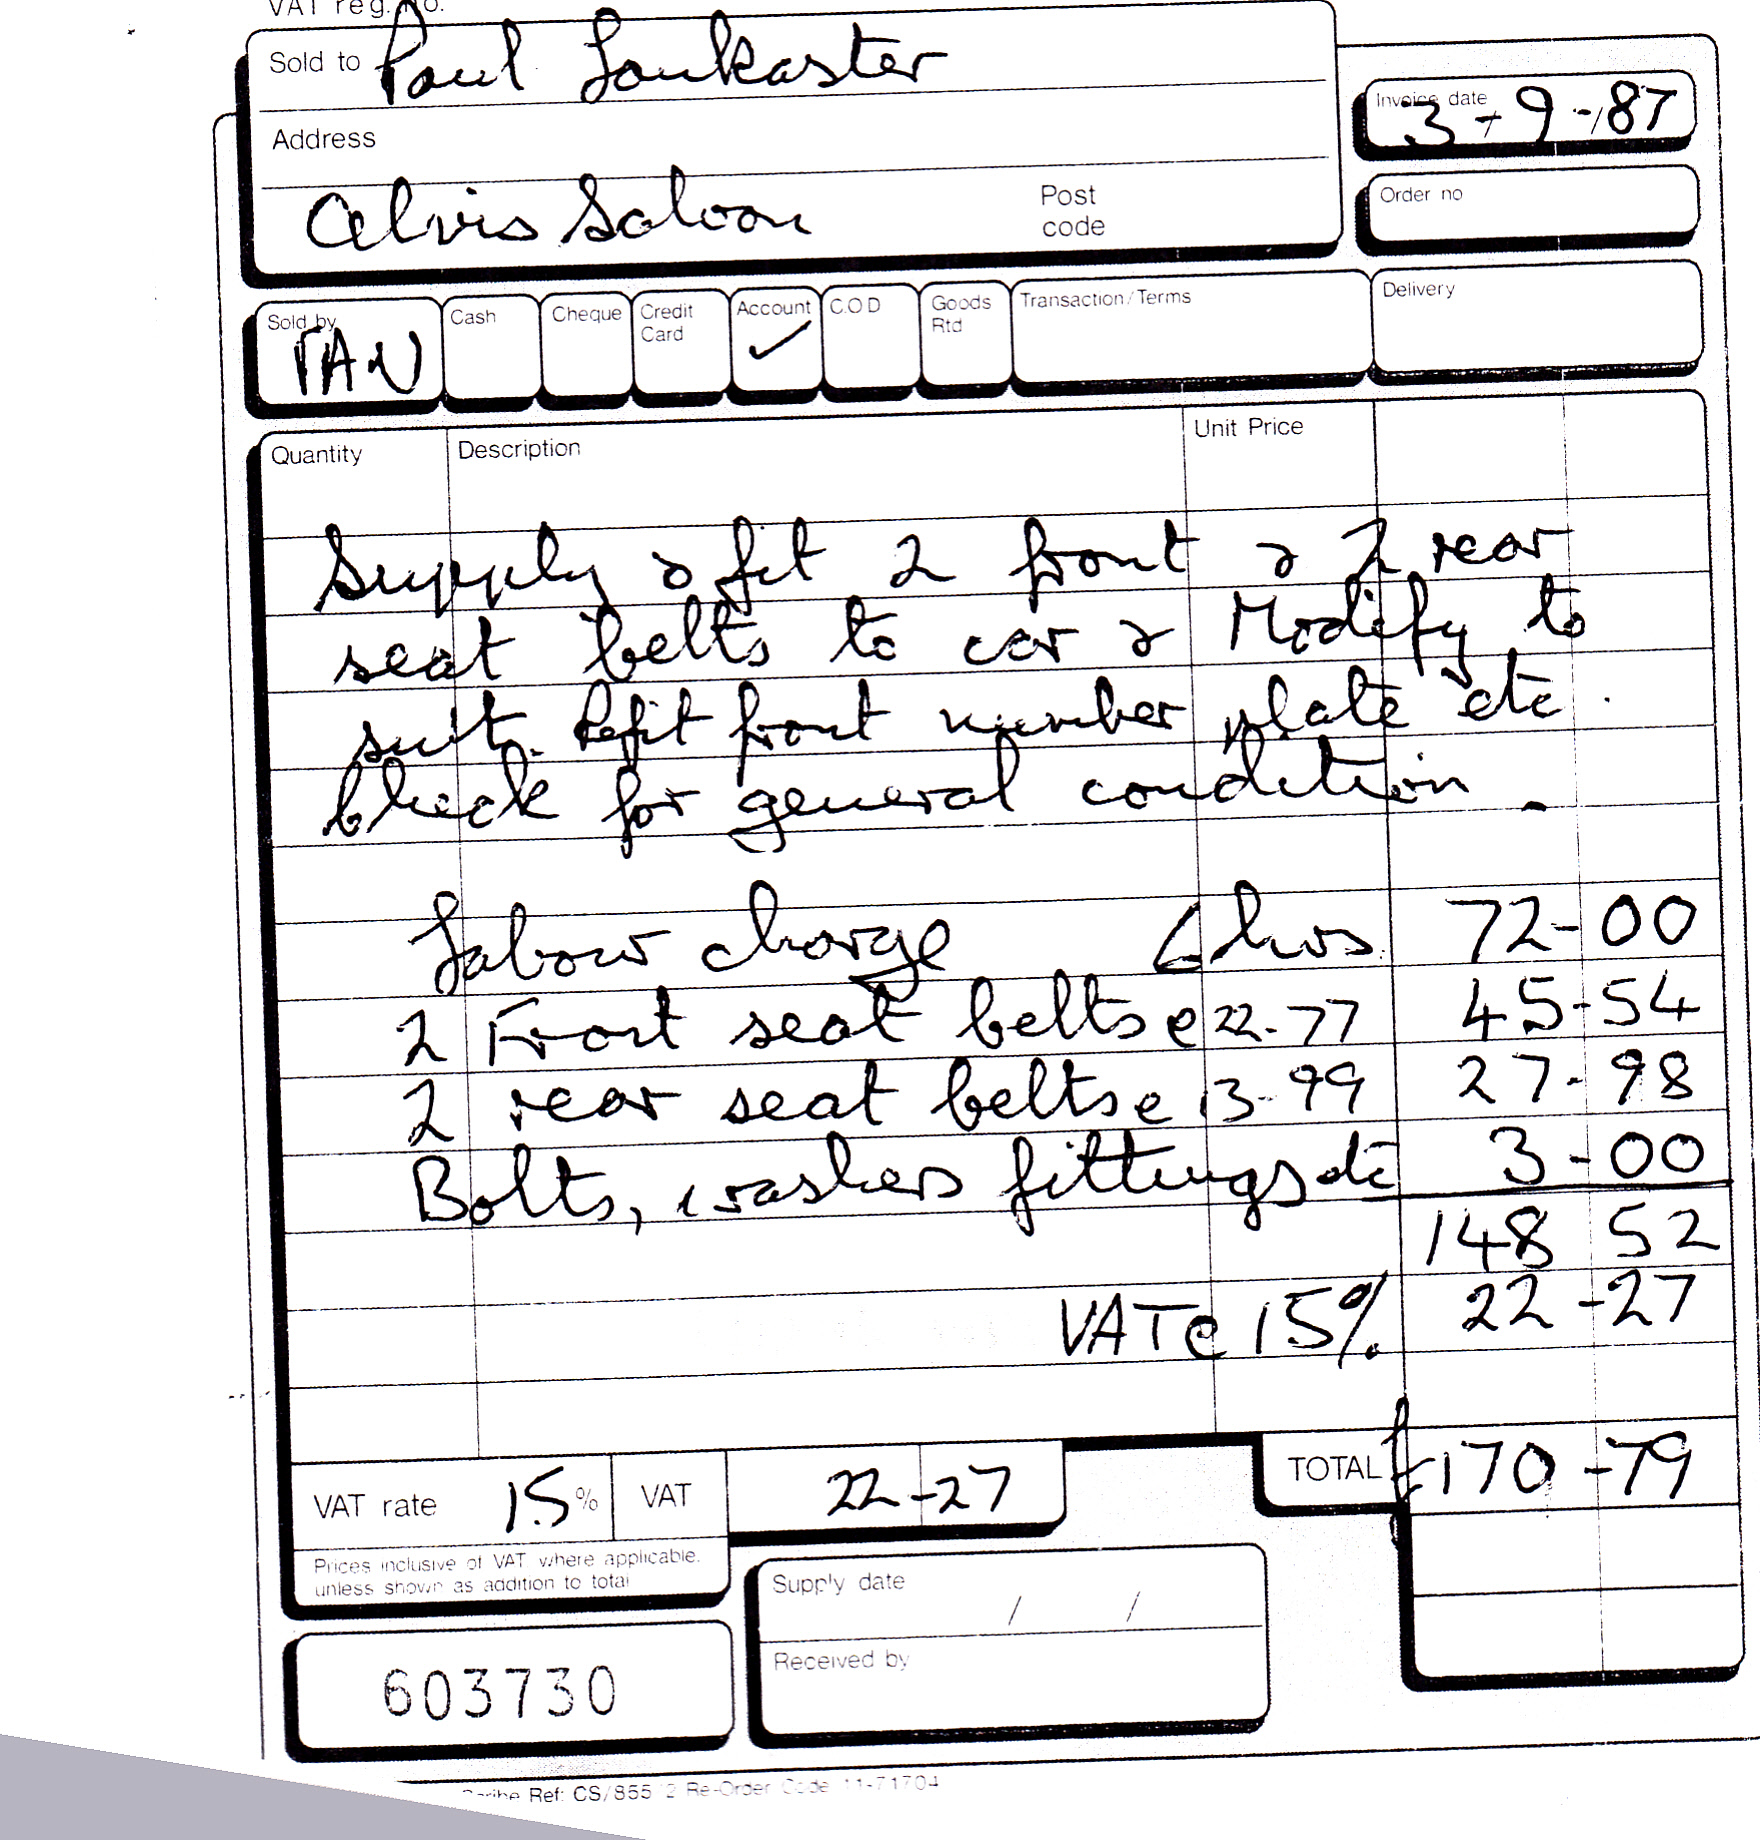 VAT reg. No.
Sold to Paul Lankaster
Invoice date 3-9-87
Address
Alvis Saloon
Post code
Order no
Sold by
Cash
Cheque
Credit Card
Account ✓
C.O.D
Goods Rtd
Transaction/Terms
Delivery
Quantity Description Unit Price
Supply & fit 2 front & 2 rear
seat belts to car & Modify to
suit. Refit front number plate etc.
Check for general condition -
Labour charge 6 hrs 72-00
2 Front seat belts @ 22-77 45-54
2 rear seat belts @ 13-99 27-98
Bolts, washers fittings etc 3-00
148 52
VAT @ 15% 22-27
TOTAL £170-79
VAT rate 15% VAT 22-27
Prices inclusive of VAT where applicable.
unless shown as addition to total
Supply date / /
Received by
603730
Ref: CS/855 2 Re-Order Code 11-71704